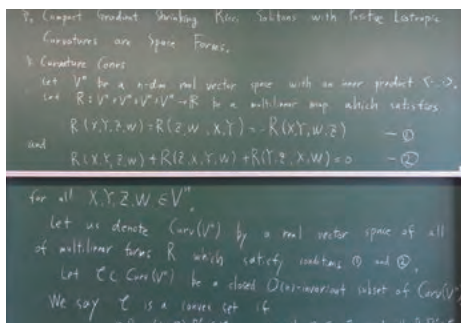 Compact Gradient Shrinking Ricci Solitons with Positive Isotropic
Curvatures are Space Forms.
Curvature Cones
Let Vⁿ be a n-dim real vector space with an inner product <·,·>.
Let R: Vⁿ×Vⁿ×Vⁿ×Vⁿ→R be a multilinear map which satisfies
R(X,Y,Z,W)=R(Z,W,X,Y)=-R(X,Y,W,Z) —①
and
R(X,Y,Z,W)+R(Z,X,Y,W)+R(Y,Z,X,W)=0 —②
for all X,Y,Z,W ∈Vⁿ.
Let us denote Curv(Vⁿ) by a real vector space of all
of multilinear forms R which satisfy conditions ① and ②.
Let C⊂Curv(Vⁿ) be a closed O(n)-invariant subset of Curv(Vⁿ)
We say C is a convex set if